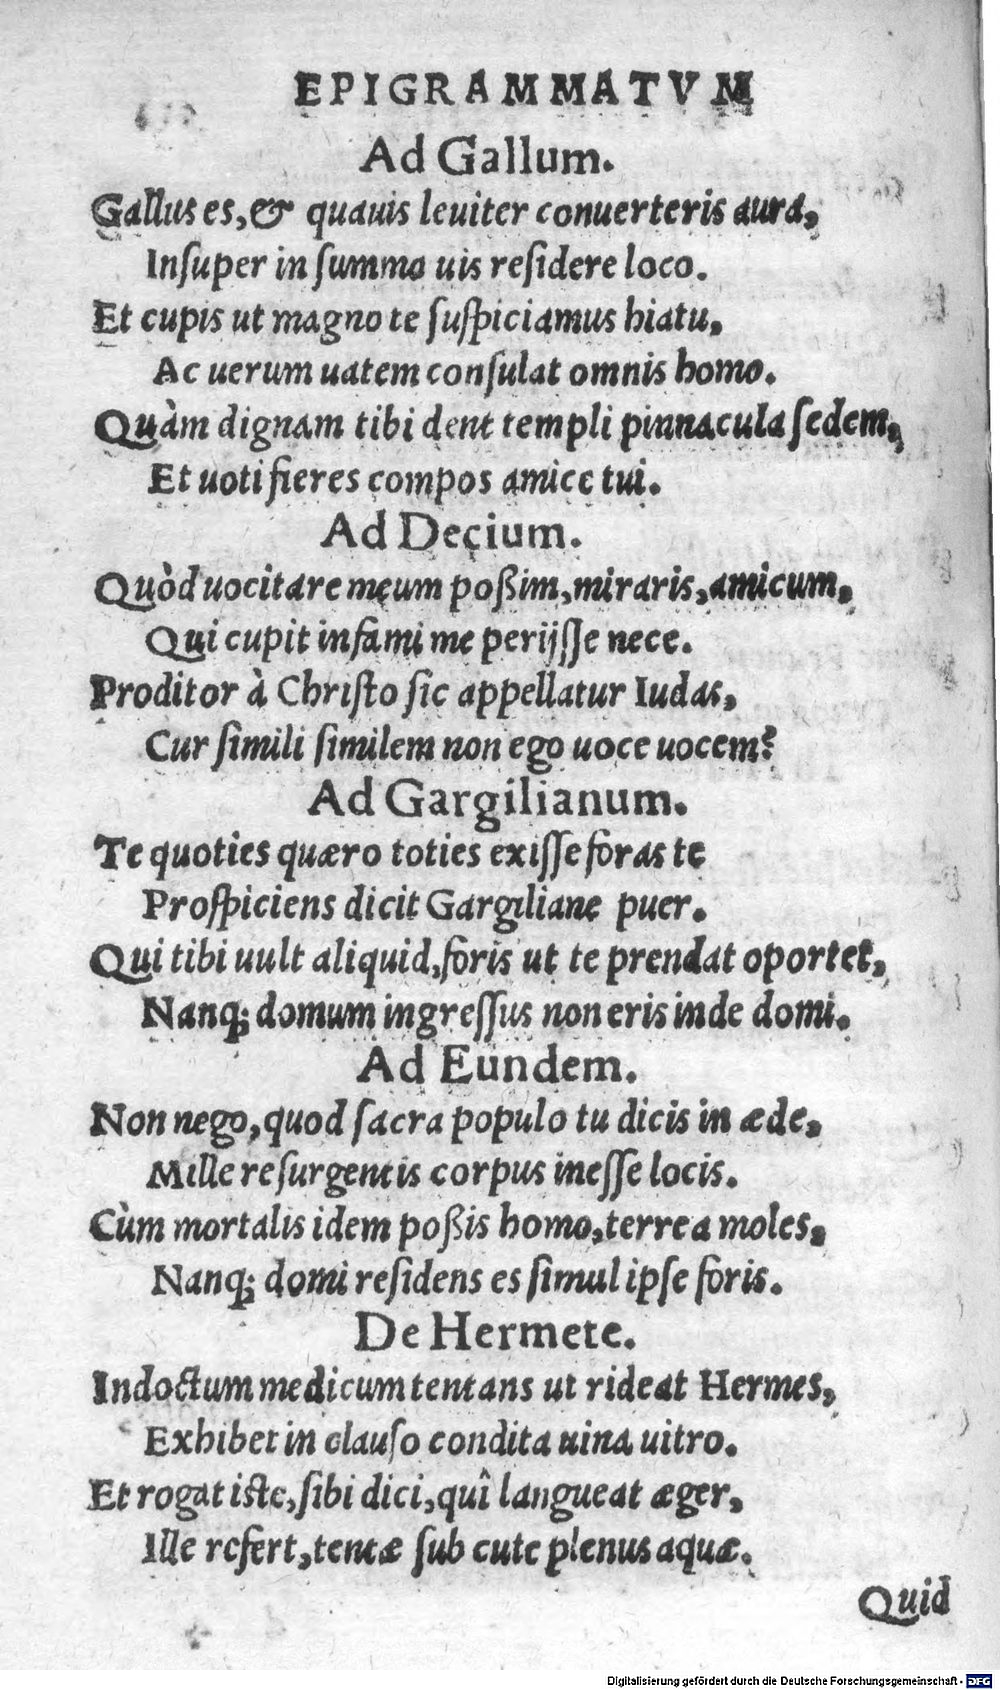 EPIGRAMMATVM
Ad Gallum.
Gallus es, & quauis leuiter conuerteris aura,
Inſuper in ſummo uis reſidere loco.
Et cupis ut magno te ſuſpiciamus hiatu,
Ac uerum uatem conſulat omnis homo.
Quàm dignam tibi dent templi pinnacula ſedem,
Et uoti fieres compos amice tui.
Ad Decium.
Quòd uocitare meum poßim, miraris, amicum,
Qui cupit infami me perijſſe nece.
Proditor à Chriſto ſic appellatur Iudas,
Cur ſimili ſimilem non ego uoce uocem?
Ad Gargilianum.
Te quoties quæro toties exiſſe foras te
Proſpiciens dicit Gargiliane puer.
Qui tibi uult aliquid, foris ut te prendat oportet,
Nanq; domum ingreſſus non eris inde domi.
Ad Eundem.
Non nego, quod ſacra populo tu dicis in æde,
Mille reſurgentis corpus ineſſe locis.
Cùm mortalis idem poßis homo, terrea moles,
Nanq; domi reſidens es ſimul ipſe foris.
De Hermete.
Indoctum medicum tentans ut rideat Hermes,
Exhibet in clauſo condita uina uitro.
Et rogat iſte, ſibi dici, quî langueat æger,
Ille refert, tentæ ſub cute plenus aquæ.
Quid
Digitalisierung gefördert durch die Deutsche Forschungsgemeinschaft - DFG